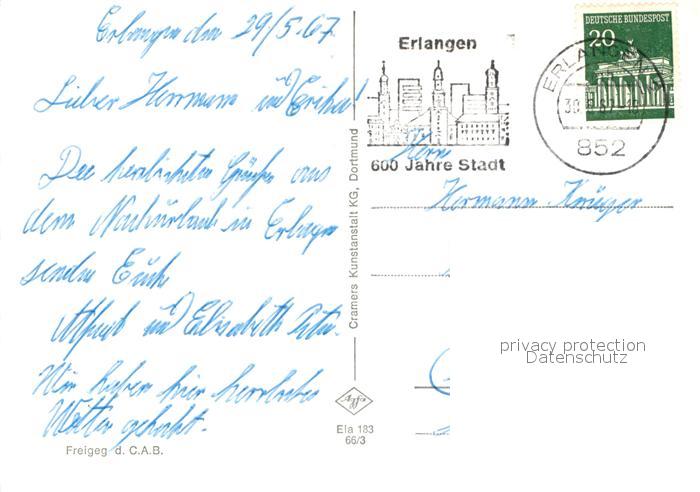 Erlangen den 29/5.67.
Lieber Herrmann und Erika!
Die herzlichsten Grüße aus
dem Nachurlaub in Erlangen
senden Euch
Alfred und Elisabeth
Wir haben hier herrliches
Wetter gehabt.
Freigeg d. C.A.B.
Cramers Kunstanstalt KG, Dortmund
Agfa
Ela 183
66/3
Erlangen
600 Jahre Stadt
DEUTSCHE BUNDESPOST
20
ERLANGEN
852
Herrn
Hermann Krüger
privacy protection
Datenschutz